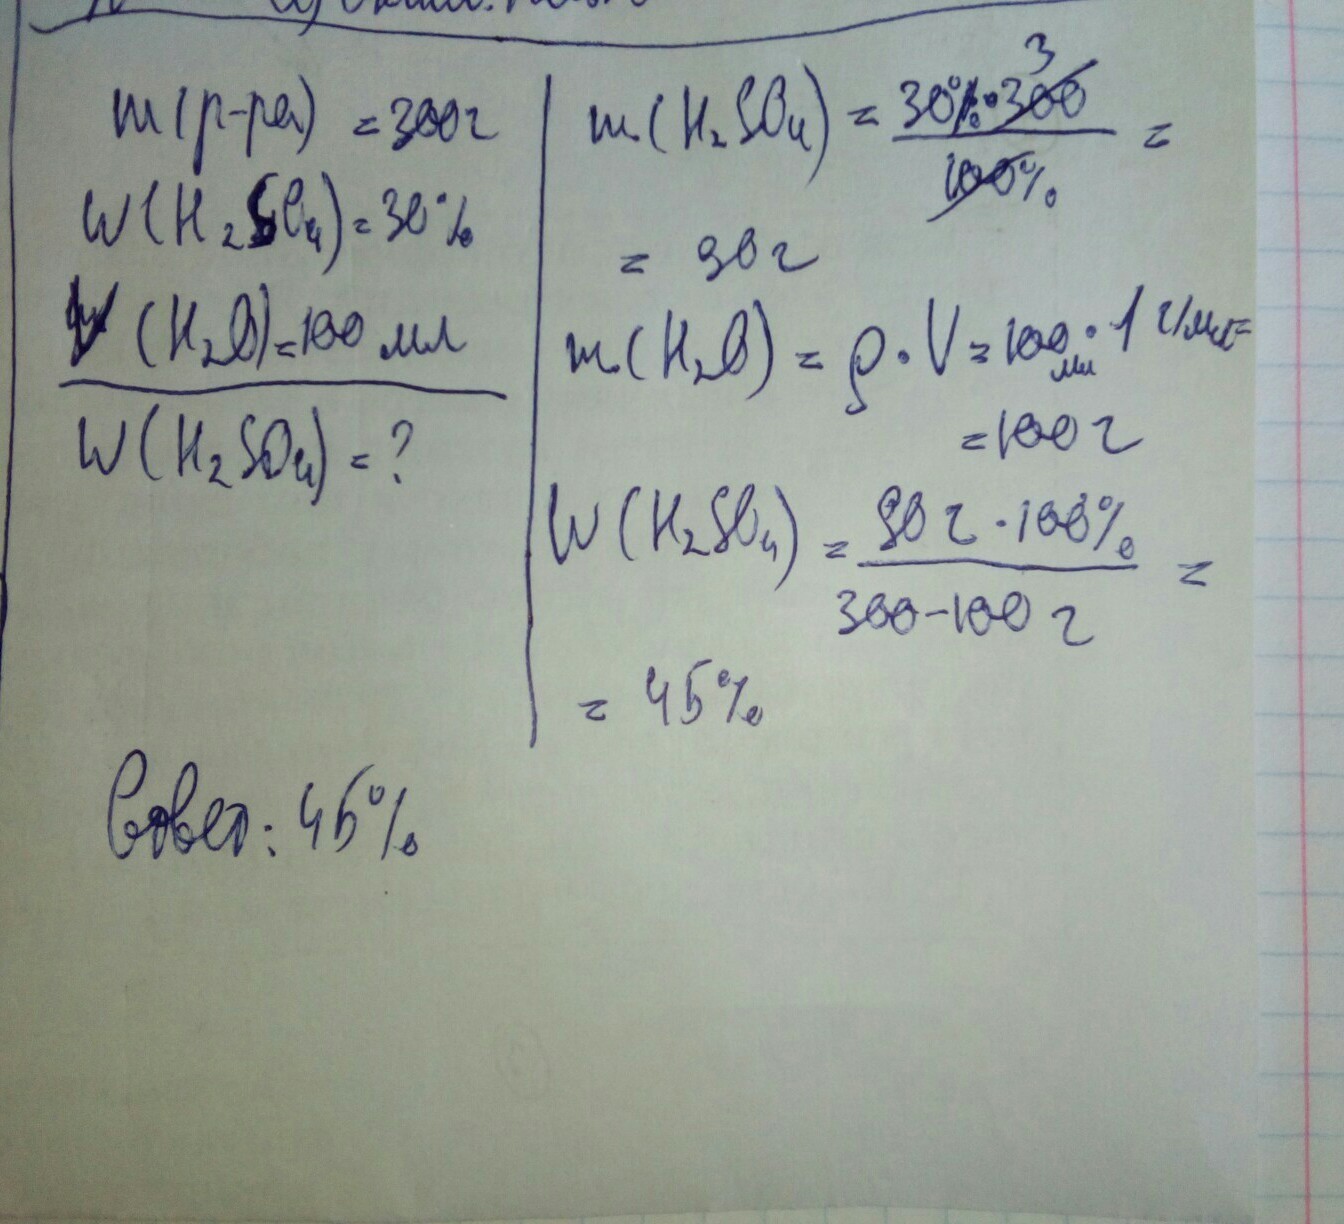 m(р-ра) = 300г
W(H₂SO₄) = 30%
V(H₂O) = 100 мл
W(H₂SO₄) = ?
m(H₂SO₄) = 30% · 300 3 / 100% =
= 90 г
m(H₂O) = ρ · V = 100 мл · 1 г/мл =
= 100 г
W(H₂SO₄) = 90 г · 100% / 300-100 г =
= 45%
Ответ: 45%